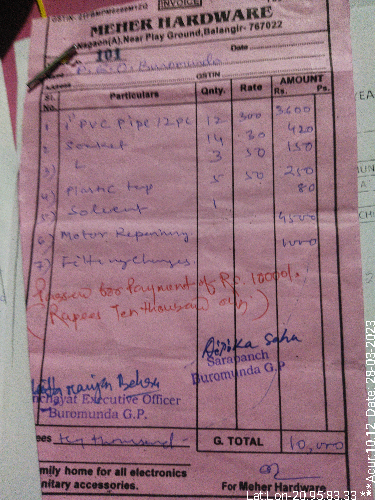 INVOICE
MEHER HARDWARE
Nagaon(A), Near Play Ground, Balangir- 767022
101
Date
Name P.E.O. Buromunda
Address GSTIN
Sl. No. Particulars Qnty. Rate AMOUNT Rs. Ps.
1 1" PVC Pipe 12 pc 12 300 3600
2) Socket 14 30 420
3) L 3 50 150
4) Plastic tap 5 50 250
5) Solvent 1 80
6) Motor Repairing 4500
7) Fitting Charges. 1000
Passed for Payment of Rs. 10000/-
(Rupees Ten thousand only)
Dipika Sahu
Sarapanch
Buromunda G.P.
Ranjan Behera
nchayat Executive Officer
Buromunda G.P.
ees Ten thousand - G. TOTAL 10,000
mily home for all electronics
nitary accessories.
For Meher Hardware
Lat Lon-20.9583.33 ***Acur 10.12 Date: 28-03-2023